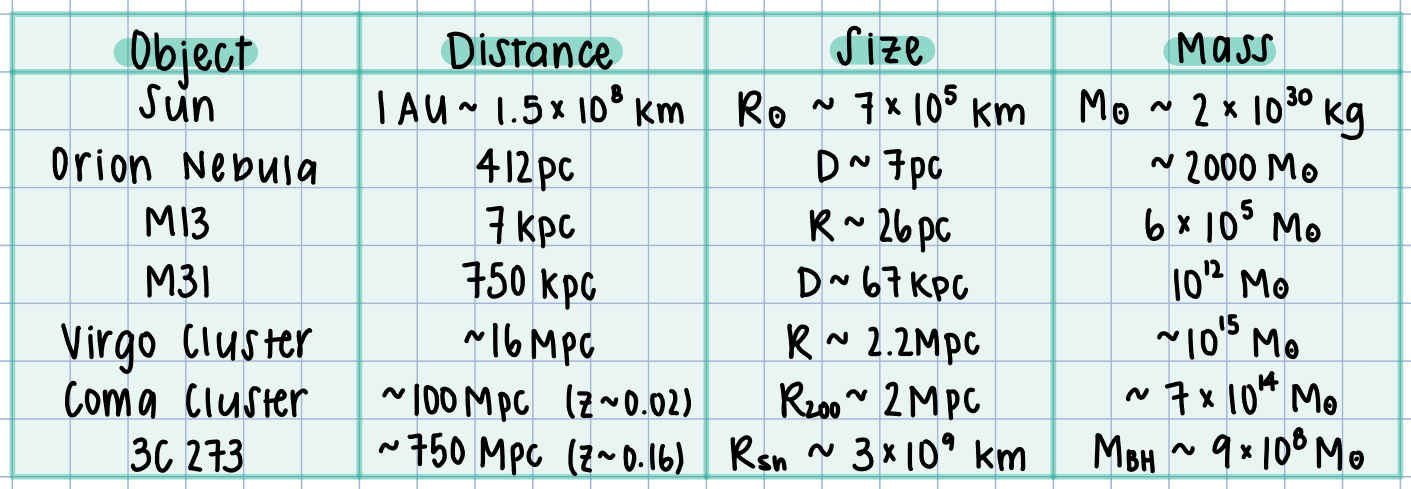 Object Distance Size Mass
Sun 1 AU ~ 1.5 × 10⁸ km R⊙ ~ 7 × 10⁵ km M⊙ ~ 2 × 10³⁰ kg
Orion Nebula 412 pc D ~ 7pc ~ 2000 M⊙
M13 7 kpc R ~ 26 pc 6 × 10⁵ M⊙
M31 750 kpc D ~ 67 kpc 10¹² M⊙
Virgo Cluster ~16 Mpc R ~ 2.2Mpc ~10¹⁵ M⊙
Coma Cluster ~100 Mpc (z ~ 0.02) R₂₀₀ ~ 2 Mpc ~ 7 × 10¹⁴ M⊙
3C 273 ~750 Mpc (z ~ 0.16) Rsh ~ 3 × 10⁹ km MBH ~ 9 × 10⁸ M⊙